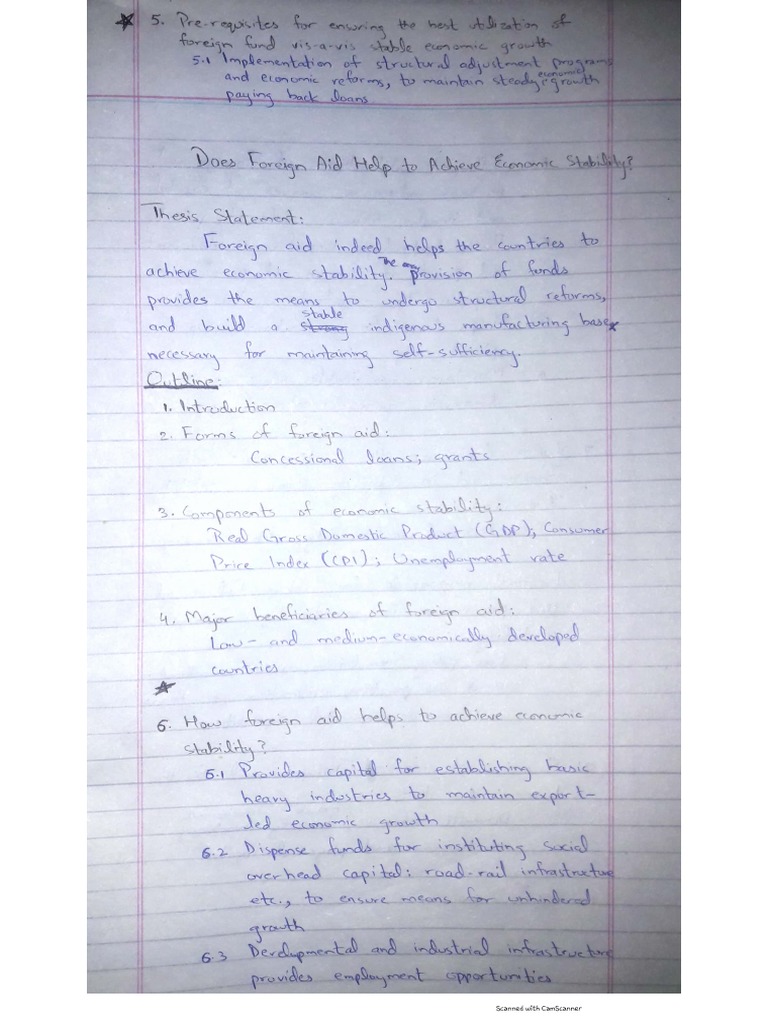 ★ 5. Pre-requisites for ensuring the best utilization of
foreign fund vis-a-vis stable economic growth
5.1 Implementation of structural adjustment programs
and economic reforms, to maintain steady economic growth
paying back loans
Does Foreign Aid Help to Achieve Economic Stability?
Thesis Statement:
Foreign aid indeed helps the countries to
achieve economic stability. The provision of funds
provides the means to undergo structural reforms,
and build a strong stable indigenous manufacturing base
necessary for maintaining self-sufficiency.
Outline:
1. Introduction
2. Forms of foreign aid:
Concessional loans; grants
3. Components of economic stability:
Real Gross Domestic Product (GDP); Consumer
Price Index (CPI); Unemployment rate
4. Major beneficiaries of foreign aid:
Low- and medium-economically developed
countries
★
6. How foreign aid helps to achieve economic
stability?
6.1 Provides capital for establishing basic
heavy industries to maintain export-
led economic growth
6.2 Dispense funds for instituting social
overhead capital: road-rail infrastructure
etc., to ensure means for unhindered
growth
6.3 Developmental and industrial infrastructure
provides employment opportunities
Scanned with CamScanner